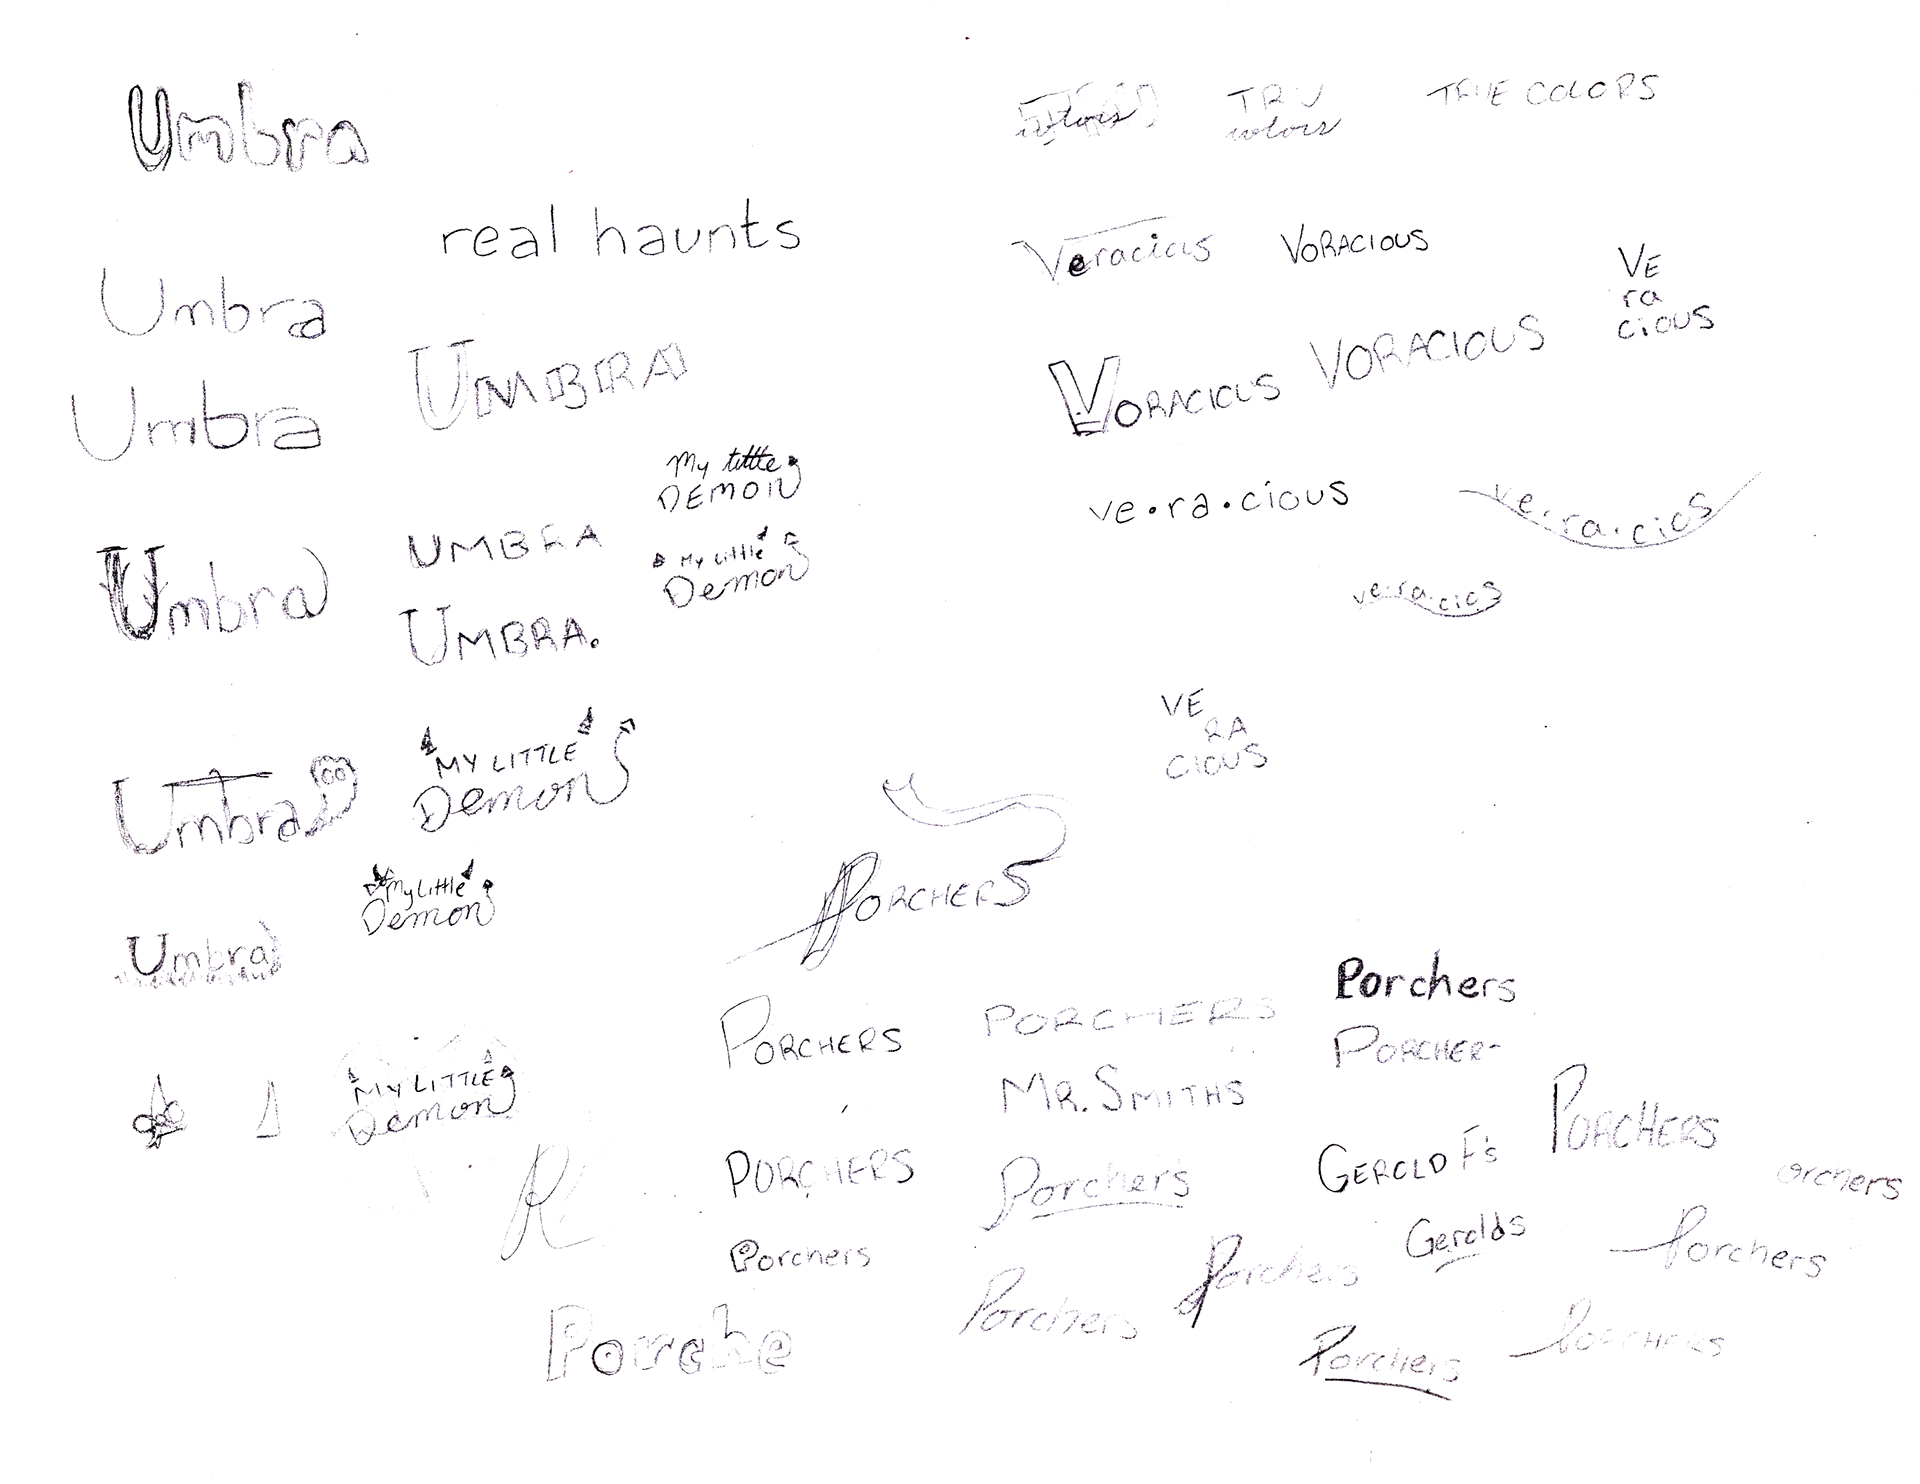 Umbra
colors
TRU
colors
TRUE COLORS
real haunts
Veracious
VORACIOUS
VE
ra
cious
Umbra
UMBRA
VORACIOUS
VORACIOUS
Umbra
My little
DEMON
ve•ra•cious
ve•ra•cios
UMBRA
My Little
Demon
Umbra
ve•ra•cios
UMBRA.
VE
RA
CIOUS
MY LITTLE
Demon
Umbra
PORCHERS
My Little
Demon
Umbra
Porchers
PORCHERS
PORCHERS
PORCHER
MY LITTLE
Demon
MR. SMITHS
PORCHERS
R
PORCHERS
Porchers
GEROLD F's
orchers
Porchers
Porchers
Gerolds
Porchers
Porche
Porchers
Porchers
PORCHERS